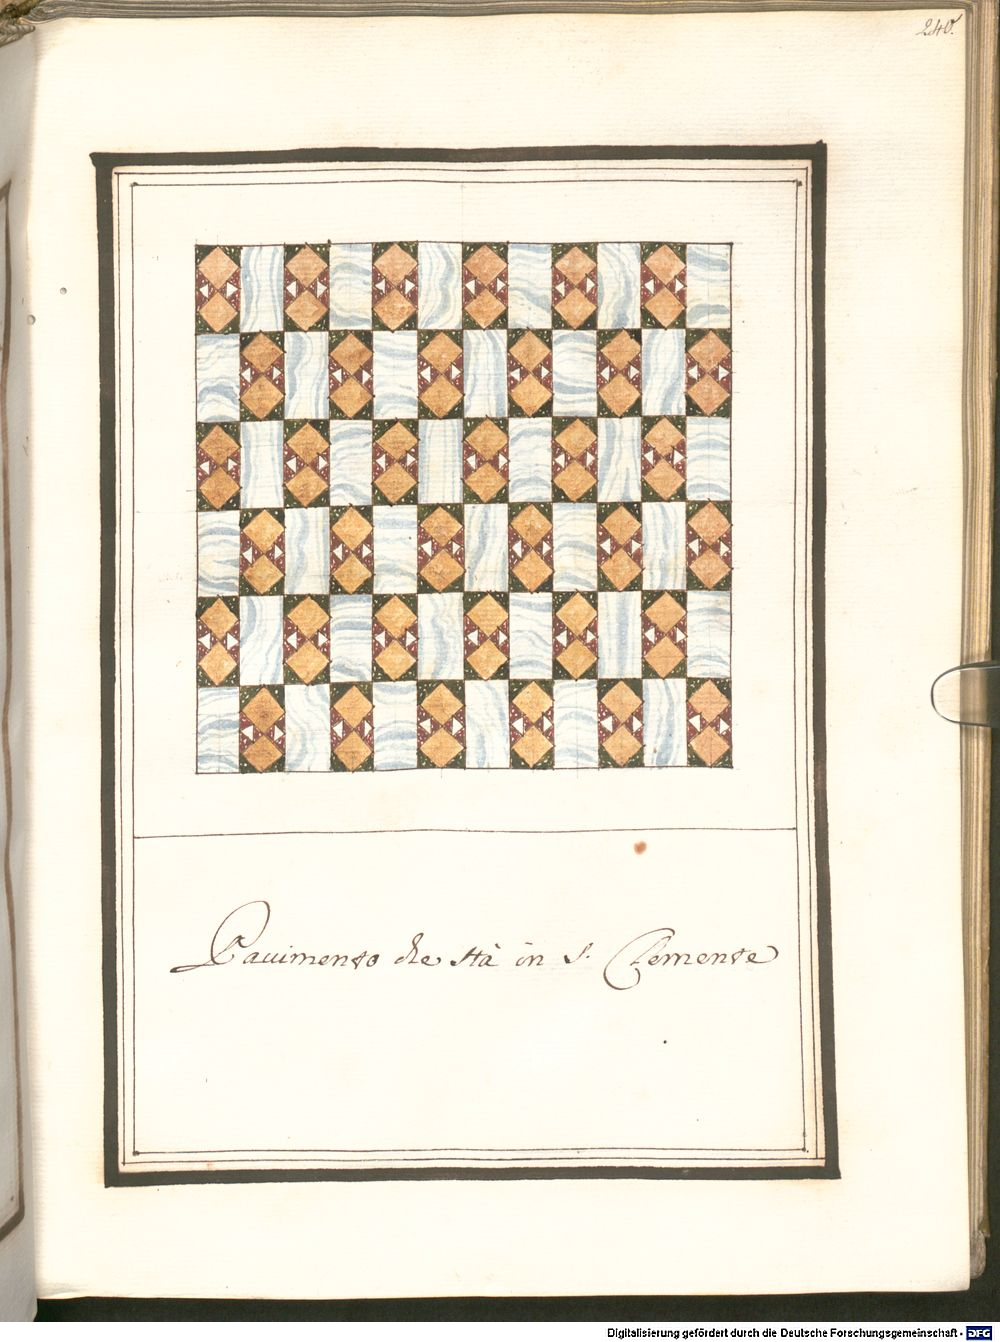 240.
Pauimento che stà in S. Clemente
Digitalisierung gefördert durch die Deutsche Forschungsgemeinschaft - DFG